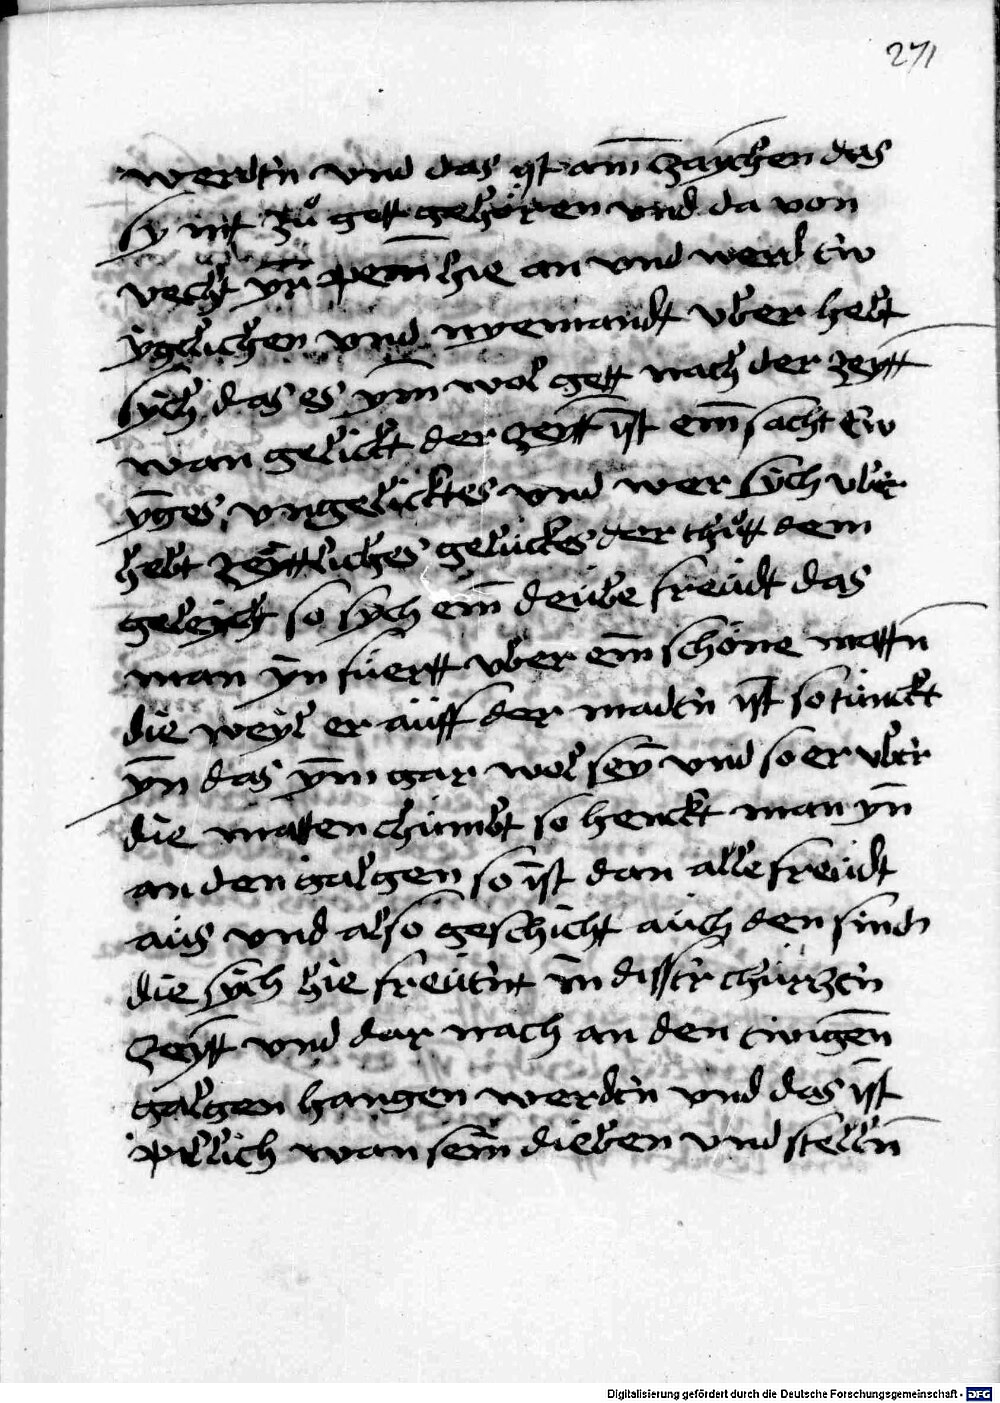 271
werdtn vnd das ist am̄ zaychen das
sy nit zů gott gehören vnd da von
vecht yr̄ pein hie an vnd werd ew
ygelichen vnd nyemandt vber hebt
sych das es ym̄ wol gett nach der zeytt
wan gelückt der zeytt ist ein̄ sacht ew
yges vngelücktes vnd wer sych vber
hebt zeyttliches gelückes der thůtt dem
geleych so sych ein̄ deübe freüdt das
man ȳn füertt vber ein̄ schöne mattn̄
die weyl er aüff der madtn ist so tünckt
ȳn das ȳm gar wol seȳ vnd so er vber
die matten chümbt so henckt man ȳn
an den galgen so ist dan alle freüdt
aüs vnd also geschicht aüch den sündn
die sych hie freütnt in disser chürtzen
zeytt vnd dar nach an den ewigen̄
galgen hangen werdtn vnd das ist
pillich wan sein̄ dieben vnd stelln̄
Digitalisierung gefördert durch die Deutsche Forschungsgemeinschaft - DFG